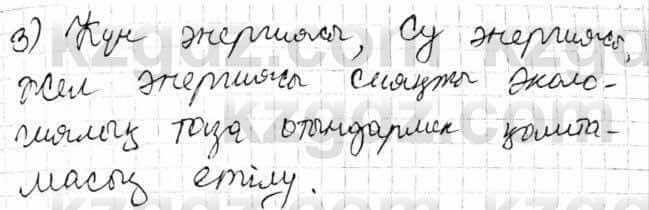 3) Күн энергиясы, Су энергиясы,
Жел энергиясы сияқты эколо-
гиялық таза отындармен қамта-
масыз етілу.